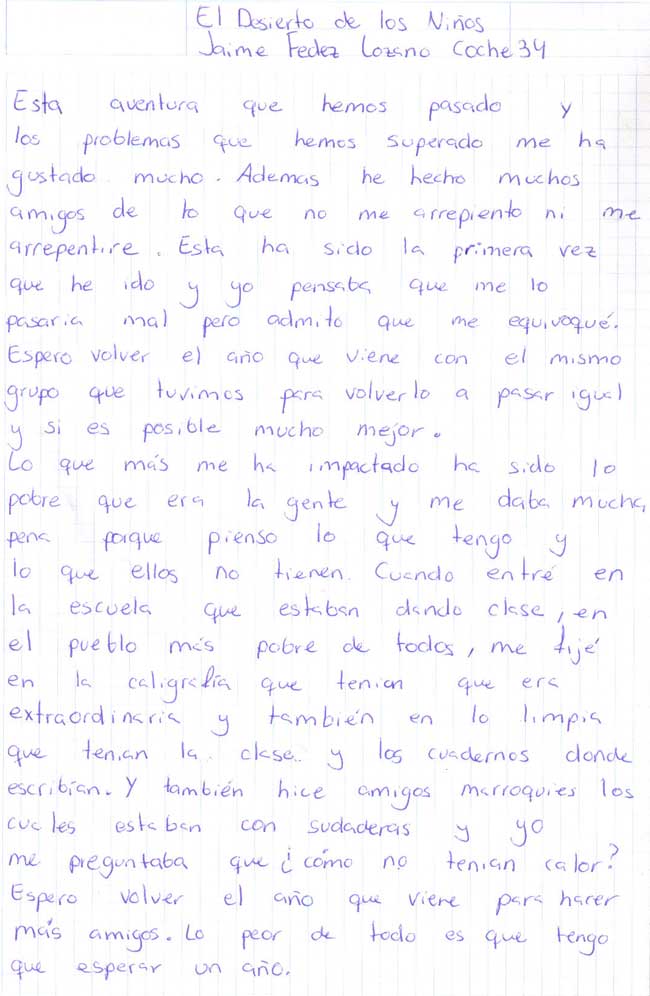 El Desierto de los Niños
Jaime Fedez Lozano Coche 34
Esta aventura que hemos pasado y
los problemas que hemos superado me ha
gustado mucho. Ademas he hecho muchos
amigos de lo que no me arrepiento ni me
arrepentire. Esta ha sido la primera vez
que he ido y yo pensaba que me lo
pasaria mal pero admito que me equivoqué.
Espero volver el año que viene con el mismo
grupo que tuvimos para volverlo a pasar igual
y si es posible mucho mejor.
Lo que más me ha impactado ha sido lo
pobre que era la gente y me daba mucha
pena porque pienso lo que tengo y
lo que ellos no tienen. Cuando entré en
la escuela que estaban dando clase, en
el pueblo más pobre de todos, me fijé
en la caligrafía que tenian que era
extraordinaria y también en lo limpia
que tenian la clase y los cuadernos donde
escribían. Y también hice amigos marroquies los
cuales estaban con sudaderas y yo
me preguntaba que ¿cómo no tenian calor?
Espero volver el año que viene para hacer
más amigos. Lo peor de todo es que tengo
que esperar un año.